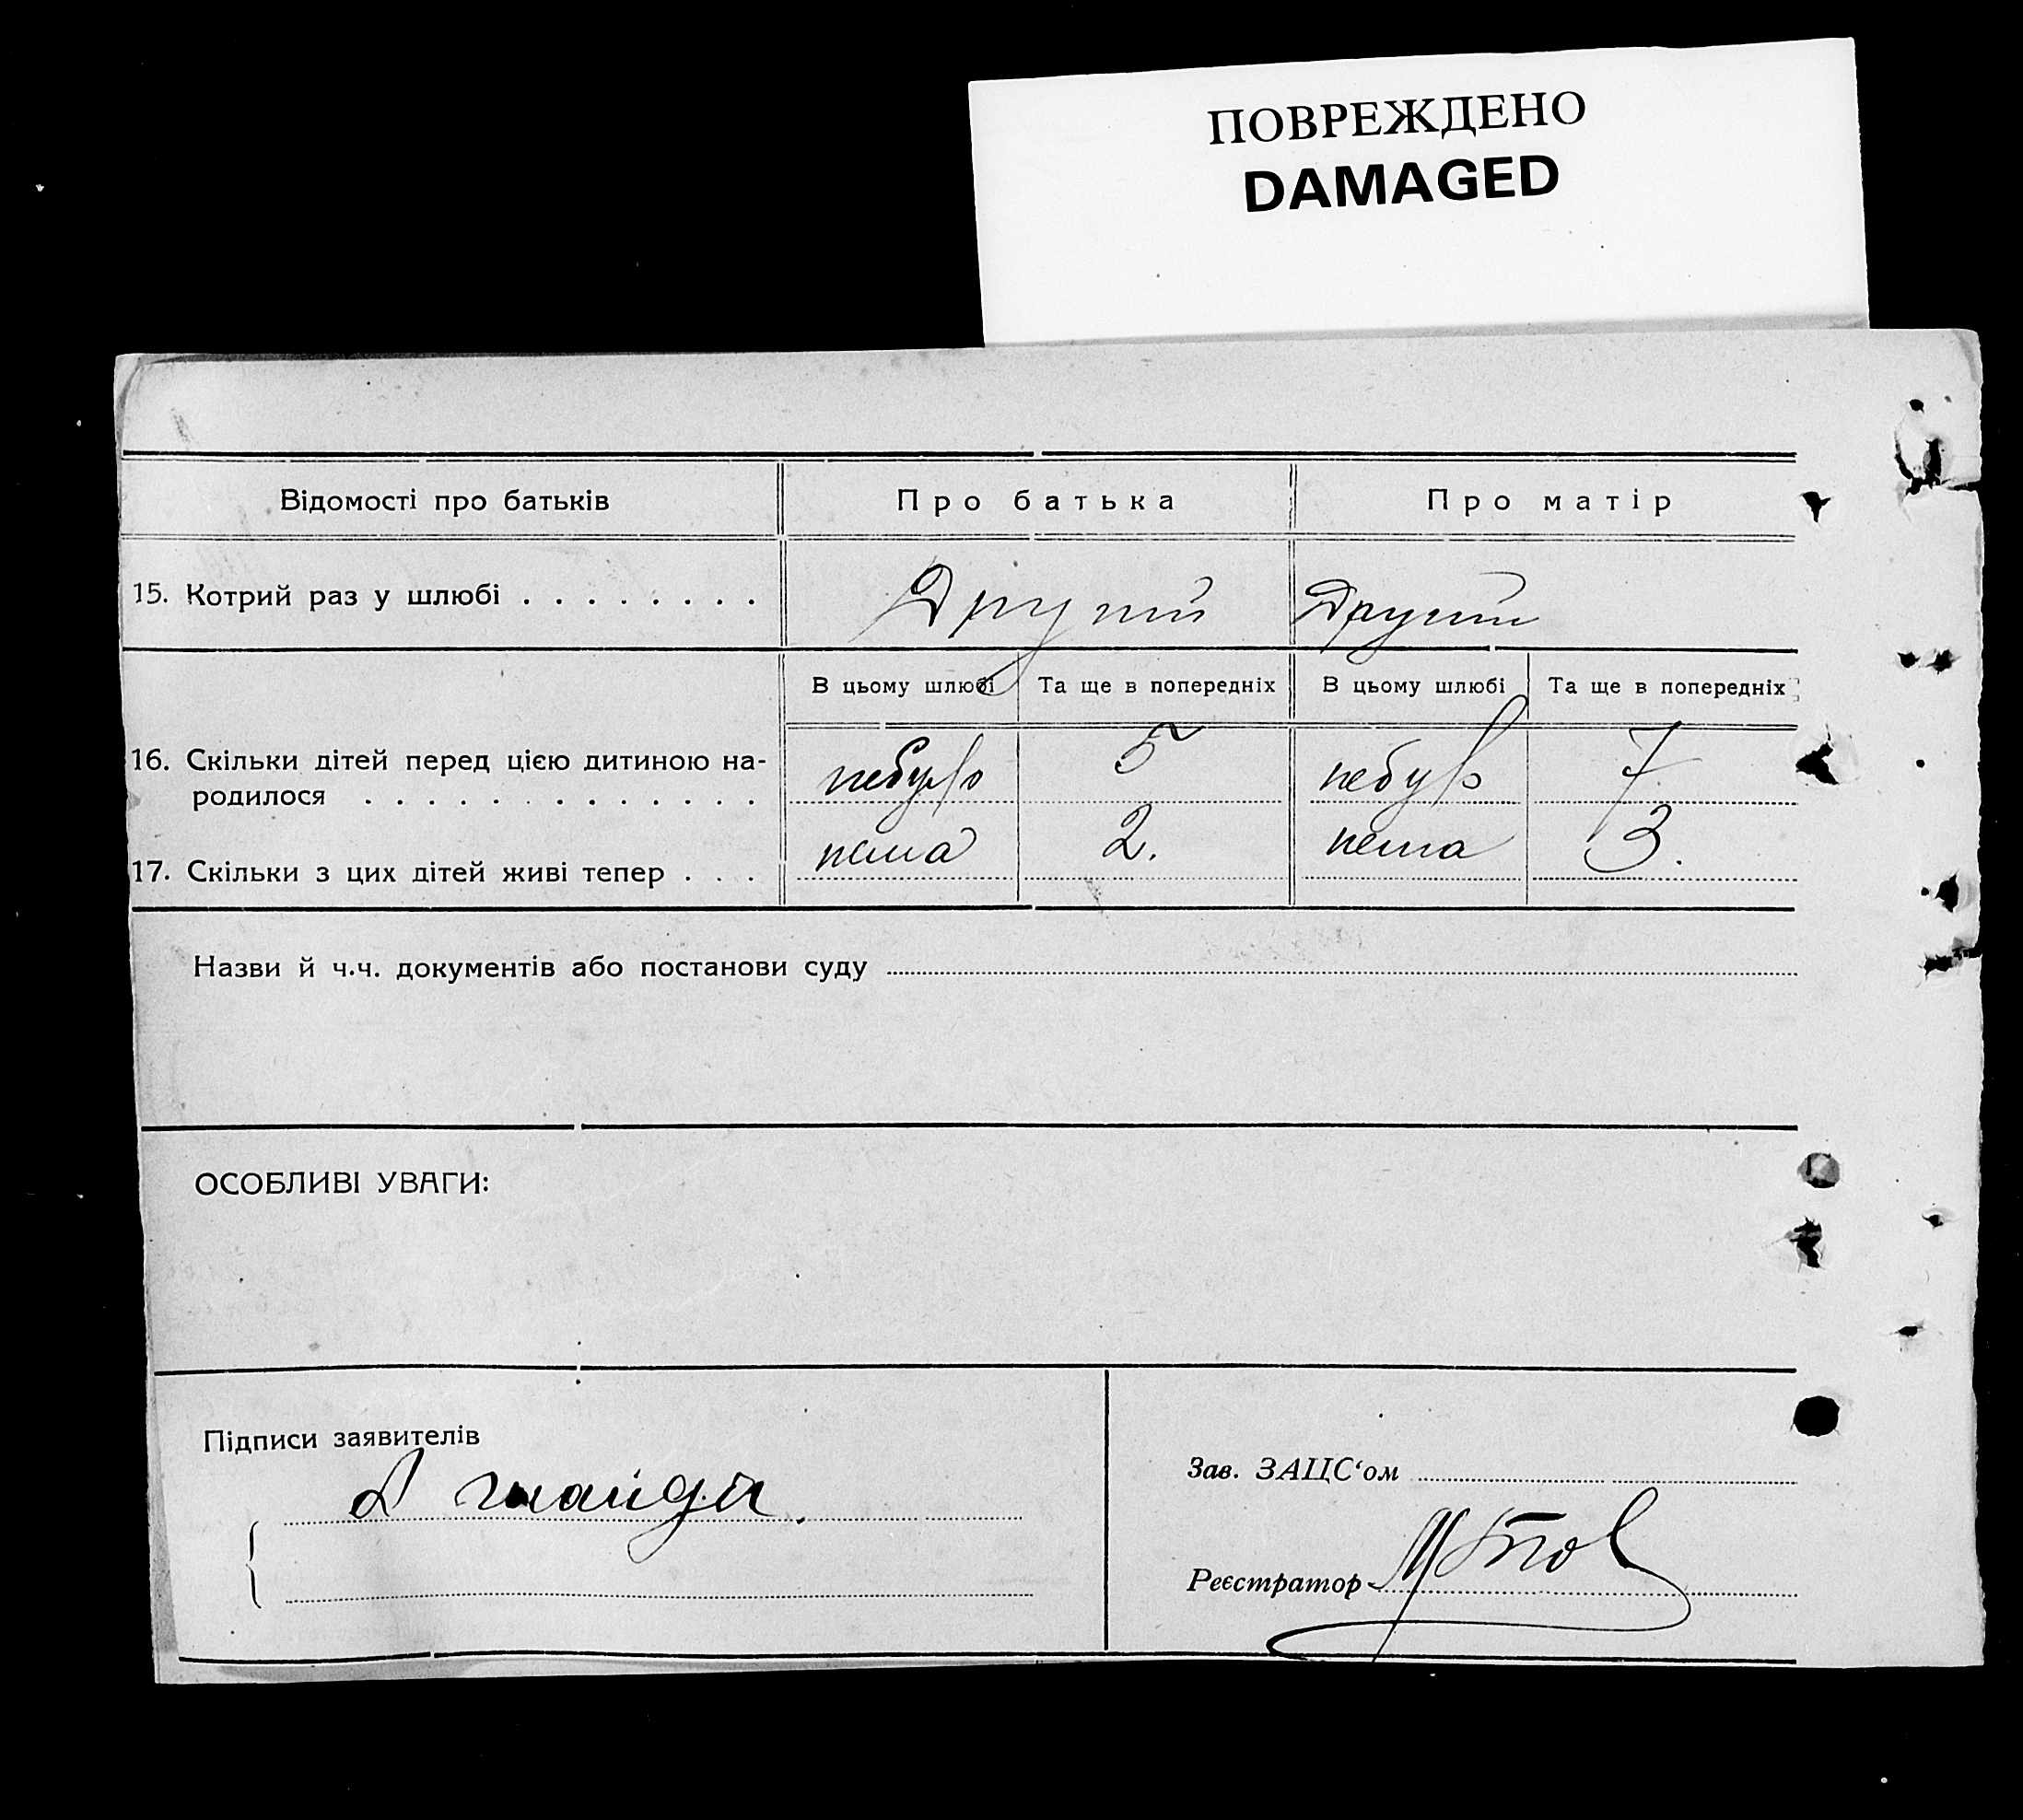 ПОВРЕЖДЕНО
DAMAGED
Відомості про батьків
Про батька
Про матір
15. Котрий раз у шлюбі . . . . . . . .
Другий
Другий
В цьому шлюбі
Та ще в попередніх
В цьому шлюбі
Та ще в попередніх
16. Скільки дітей перед цією дитиною на-
родилося . . . . . . . . . . . . .
небуло
5
небуло
7
17. Скільки з цих дітей живі тепер . . .
нема
2.
нема
3.
Назви й ч.ч. документів або постанови суду
ОСОБЛИВІ УВАГИ:
Підписи заявителів
Зав. ЗАЦС‘ом
Реєстратор